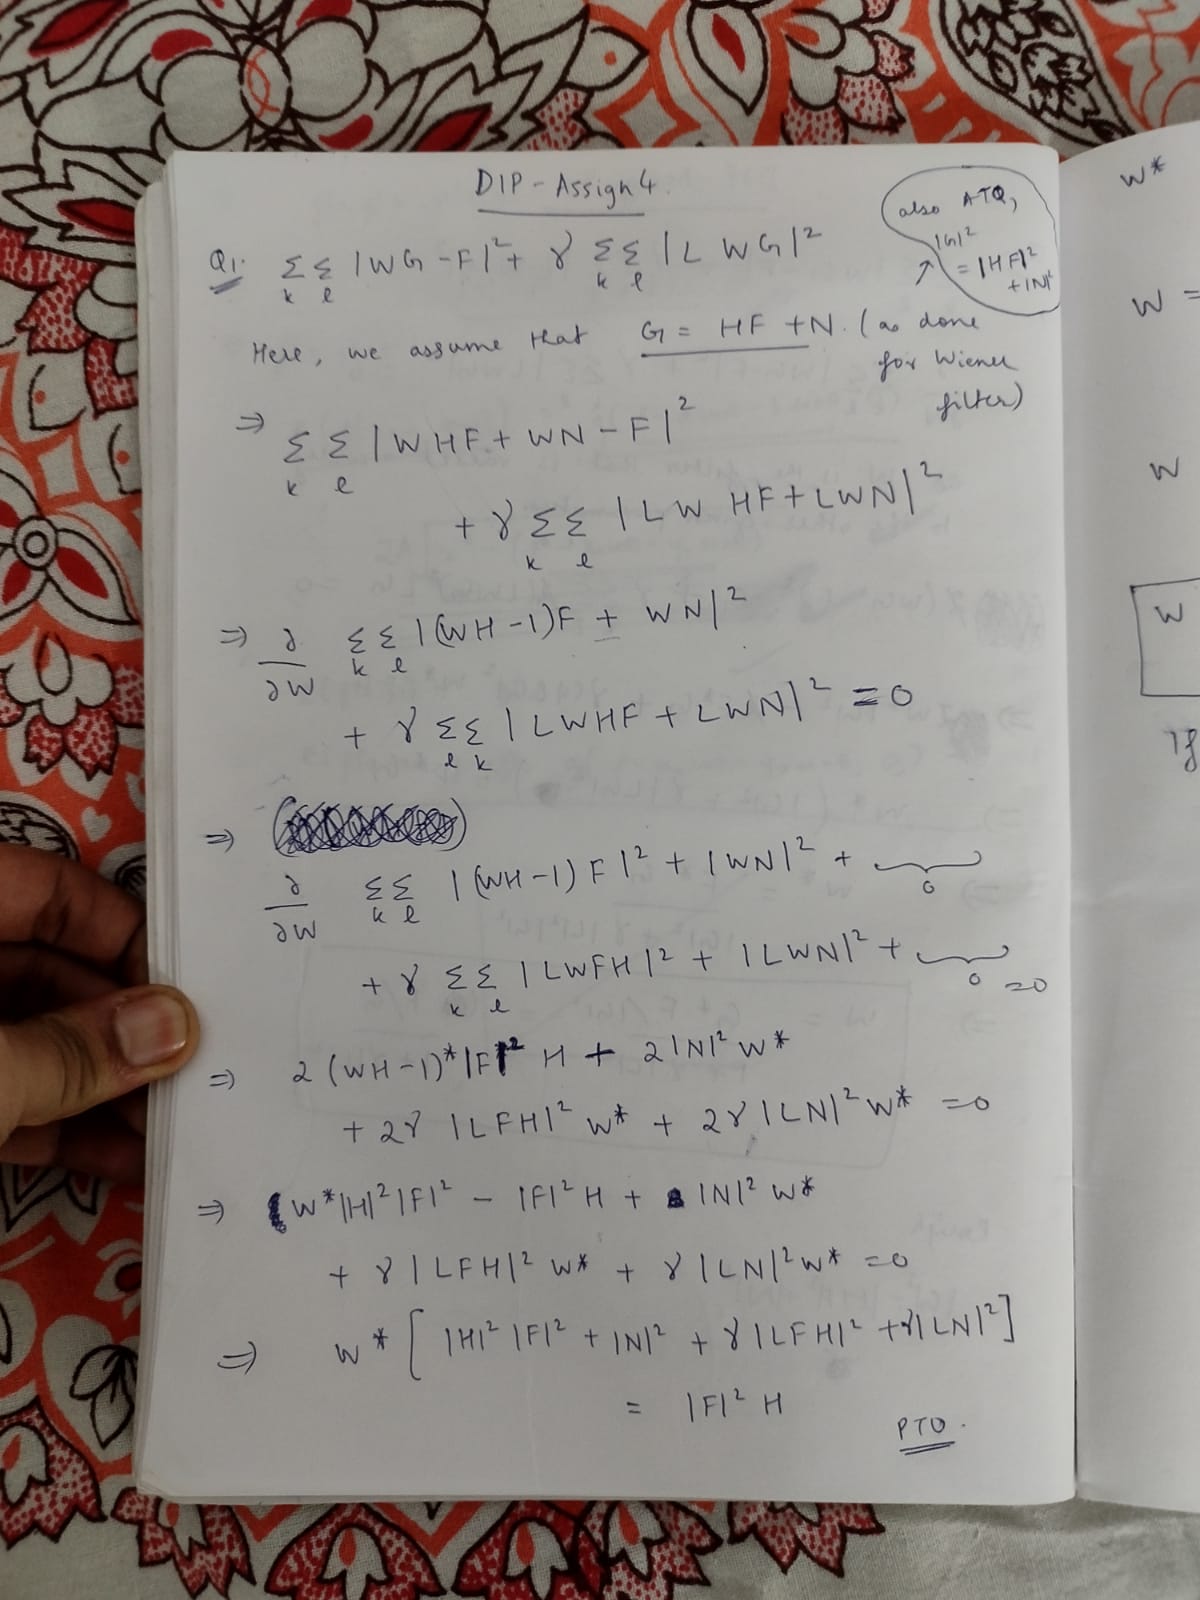 DIP - Assign 4.
also ATQ,
|G|²
= |HF|²
+ |N|²
Q1. Σ Σ |WG - F|² + γ Σ Σ |L WG|²
k l k l
Here, we assume that G = HF + N. (as done
for Wiener
filter)
⇒ Σ Σ |WHF + WN - F|²
k l
+ γ Σ Σ |LW HF + LWN|²
k l
⇒ ∂ Σ Σ |(WH - 1)F + WN|²
∂W k l
+ γ Σ Σ |LWHF + LWN|² = 0
l k
⇒
∂ Σ Σ |(WH - 1) F|² + |WN|² +
∂W k l 0
+ γ Σ Σ |LWFH|² + |LWN|² +
k l 0 = 0
⇒ 2 (WH - 1)* |F|² H + 2|N|² W*
+ 2γ |LFH|² W* + 2γ |LN|² W* = 0
⇒ W* |H|² |F|² - |F|² H + |N|² W*
+ γ |LFH|² W* + γ |LN|² W* = 0
⇒ W* [ |H|² |F|² + |N|² + γ |LFH|² + γ|LN|² ]
= |F|² H
PTO.
W*
W =
W
W
If